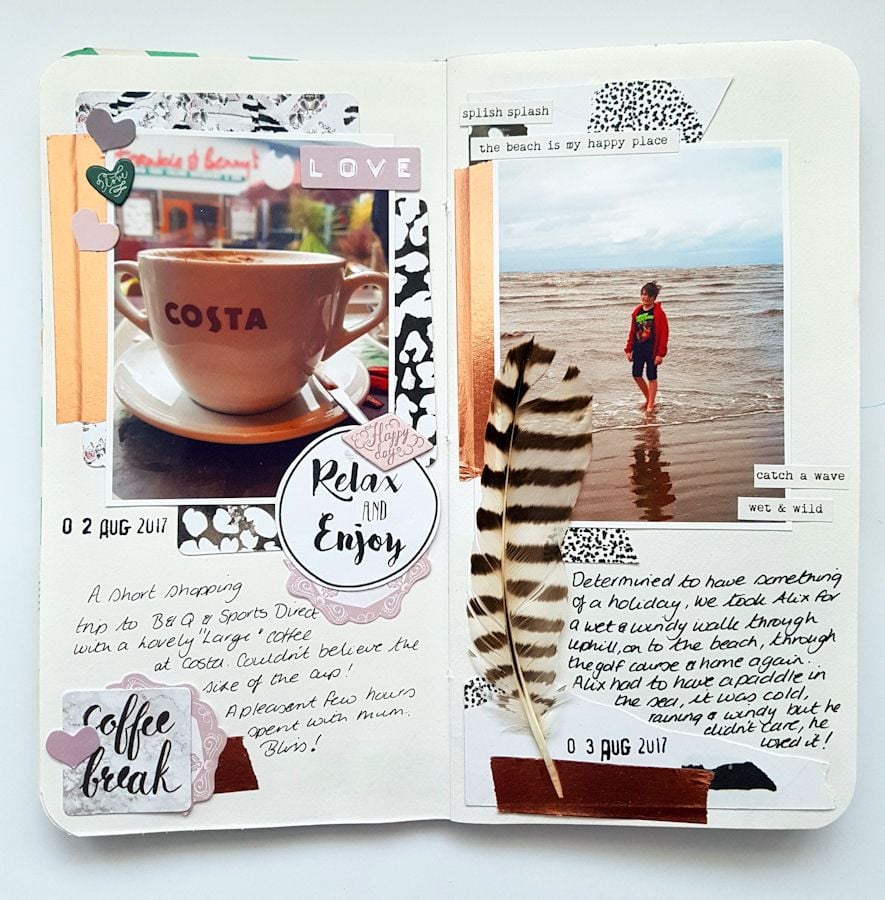 Frankie & Benny's
LOVE
love
COSTA
Happy
day
Relax
AND
Enjoy
02 AUG 2017
A short shopping
trip to B&Q & Sports Direct
with a lovely "Large" coffee
at Costa. Couldn't believe the
size of the cup!
A pleasent few hours
spent with Mum.
Bliss!
coffee
break
splish splash
the beach is my happy place
catch a wave
wet & wild
Determined to have something
of a holiday, we took Alix for
a wet & windy walk through
uphill, on to the beach, through
the golf course & home again.
Alix had to have a paddle in
the sea, it was cold,
raining & windy but he
didn't care, he
loved it!
03 AUG 2017